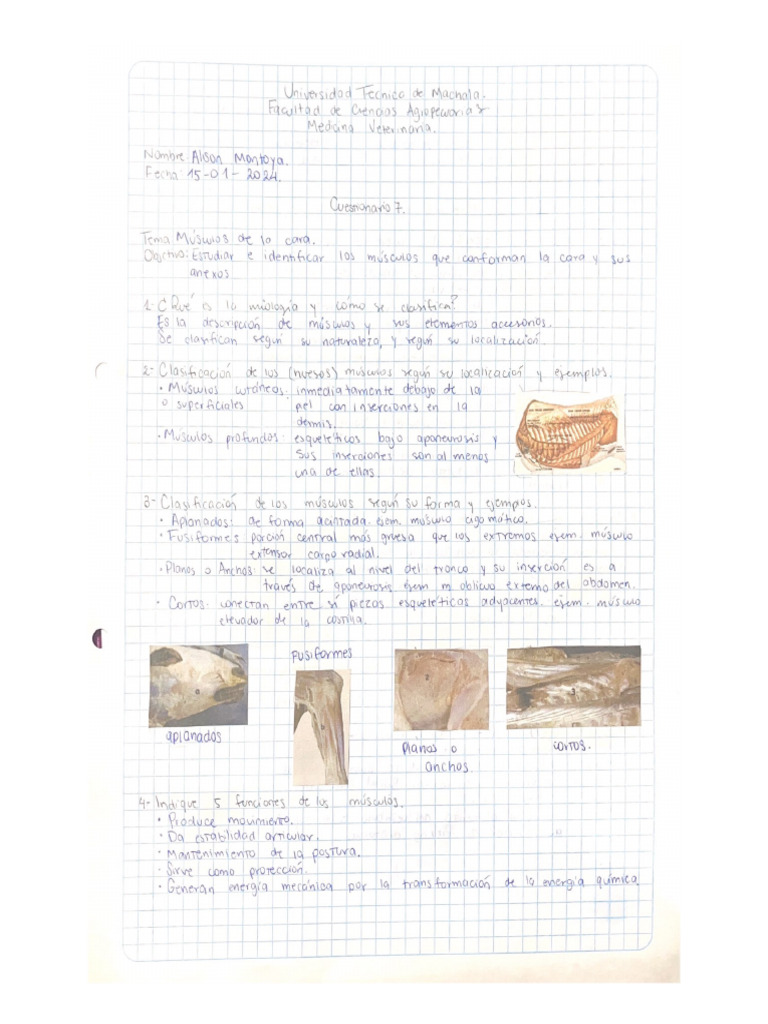 Universidad Tecnica de Machala.
Facultad de Ciencias Agropecuarias
Medicina Veterinaria.
Nombre: Alison Montoya.
Fecha: 15-01-2024.
Cuestionario 7.
Tema: Músculos de la cara.
Objetivo: Estudiar e identificar los músculos que conforman la cara y sus
anexos
1- ¿Qué es la miología y cómo se clasifica?
Es la descripción de músculos y sus elementos accesorios.
Se clasifican según su naturaleza, y según su localización.
2- Clasificación de los (huesos) músculos según su localización y ejemplos.
• Músculos cutáneos: inmediatamente debajo de la
o superficiales piel con inserciones en la
dermis.
• Músculos profundos: esqueléticos bajo aponeurosis y
sus inserciones son al menos
una de ellas.
3- Clasificación de los músculos según su forma y ejempos.
• Aplanados: de forma acintada. ejem. músculo cigomático.
• Fusiformes porción central más gruesa que los extremos ejem. músculo
extensor carpo radial.
• Planos o Anchos: se localiza al nivel del tronco y su inserción es a
través de aponeurosis ejem m oblicuo externo del abdomen.
• Cortos: conectan entre si piezas esqueléticas adyacentes. ejem. músculo
elevador de la costilla.
Fusiformes
aplanados
planos o
anchos
cortos.
4- Indique 5 funciones de los músculos.
• Produce movimiento.
• Da estabilidad articular.
• Mantenimiento de la postura.
• Sirve como protección.
• Generan energía mecánica por la transformación de la energía química